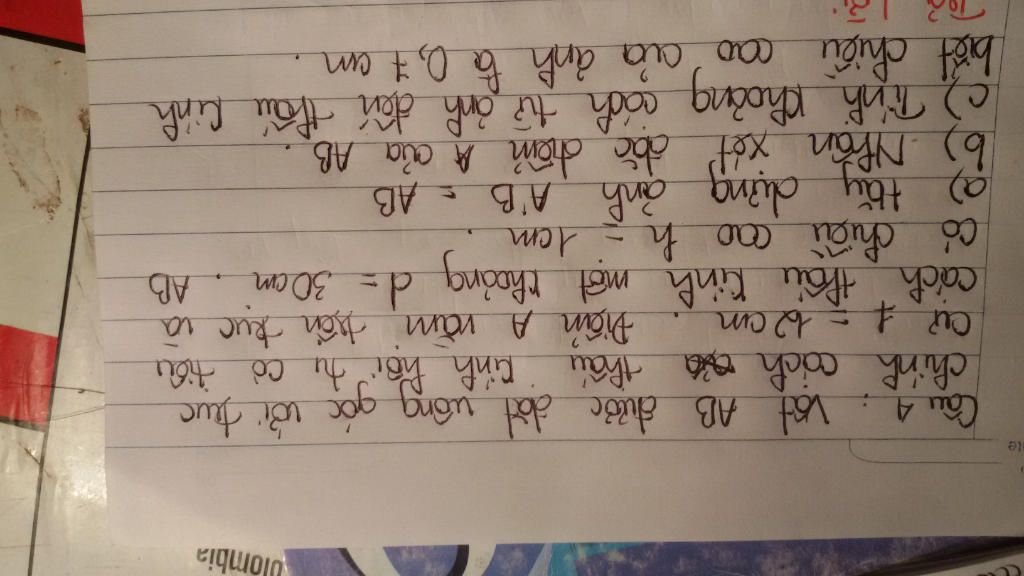 Câu 1 : Vật AB được đặt vuông góc với trục
chính cách thấu kính hội tụ có tiêu
cự f = 12 cm . Điểm A nằm trên trục và
cách thấu kính một khoảng d = 30 cm . AB
có chiều cao h = 1cm .
a) Hãy dựng ảnh A'B = AB
b) Nhận xét đặc điểm A của AB .
c) Tính khoảng cách từ ảnh đến thấu kính
biết chiều cao của ảnh là 0,7 cm .
olombia